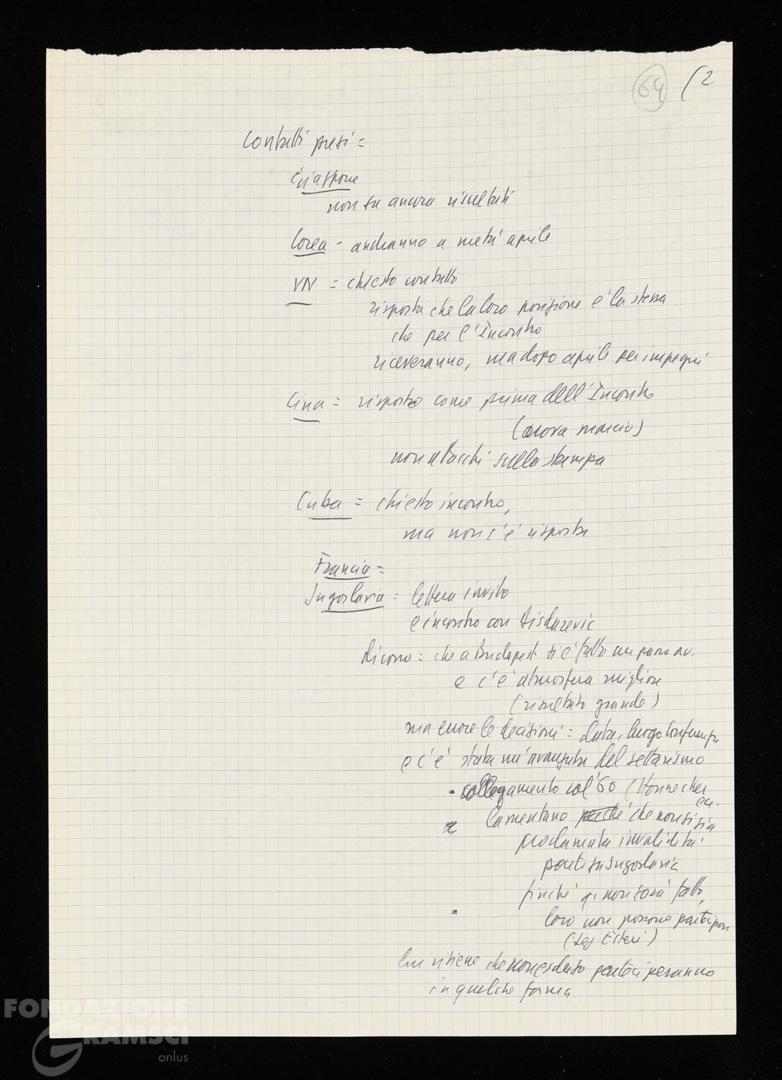 64 (2
Contatti presi =
Giappone
non sa ancora risultati
Corea - andranno a metà aprile
VN = chiesto contatto
risposta che la loro posizione è la stessa
che per l'Incontro
riceveranno, ma dopo aprile per impegni
Cina = risposto come prima dell'Incontro
(ancora marcius)
non attacchi sulla stampa
Cuba = chiesto incontro,
ma non c'è risposta
Francia =
Jugoslavia = lettera invito
e incontro con
Dicono = che a Budapest si è fatto un passo av.
e c'è atmosfera migliore
(risultato grande)
ma le decisioni = data, luogo
e c'è stata un'avanzata del settarismo
• collegamento col '60 (Honnecker
ecc.
• lamentano perché che non si sia
proclamata invalidità
Jugoslavia
finché q. non sarà fatto,
• loro non possono partecipare
(Seg. Esteri)
ritiene che non escluso parteciperanno
in qualche forma
FONDAZIONE
GRAMSCI
onlus